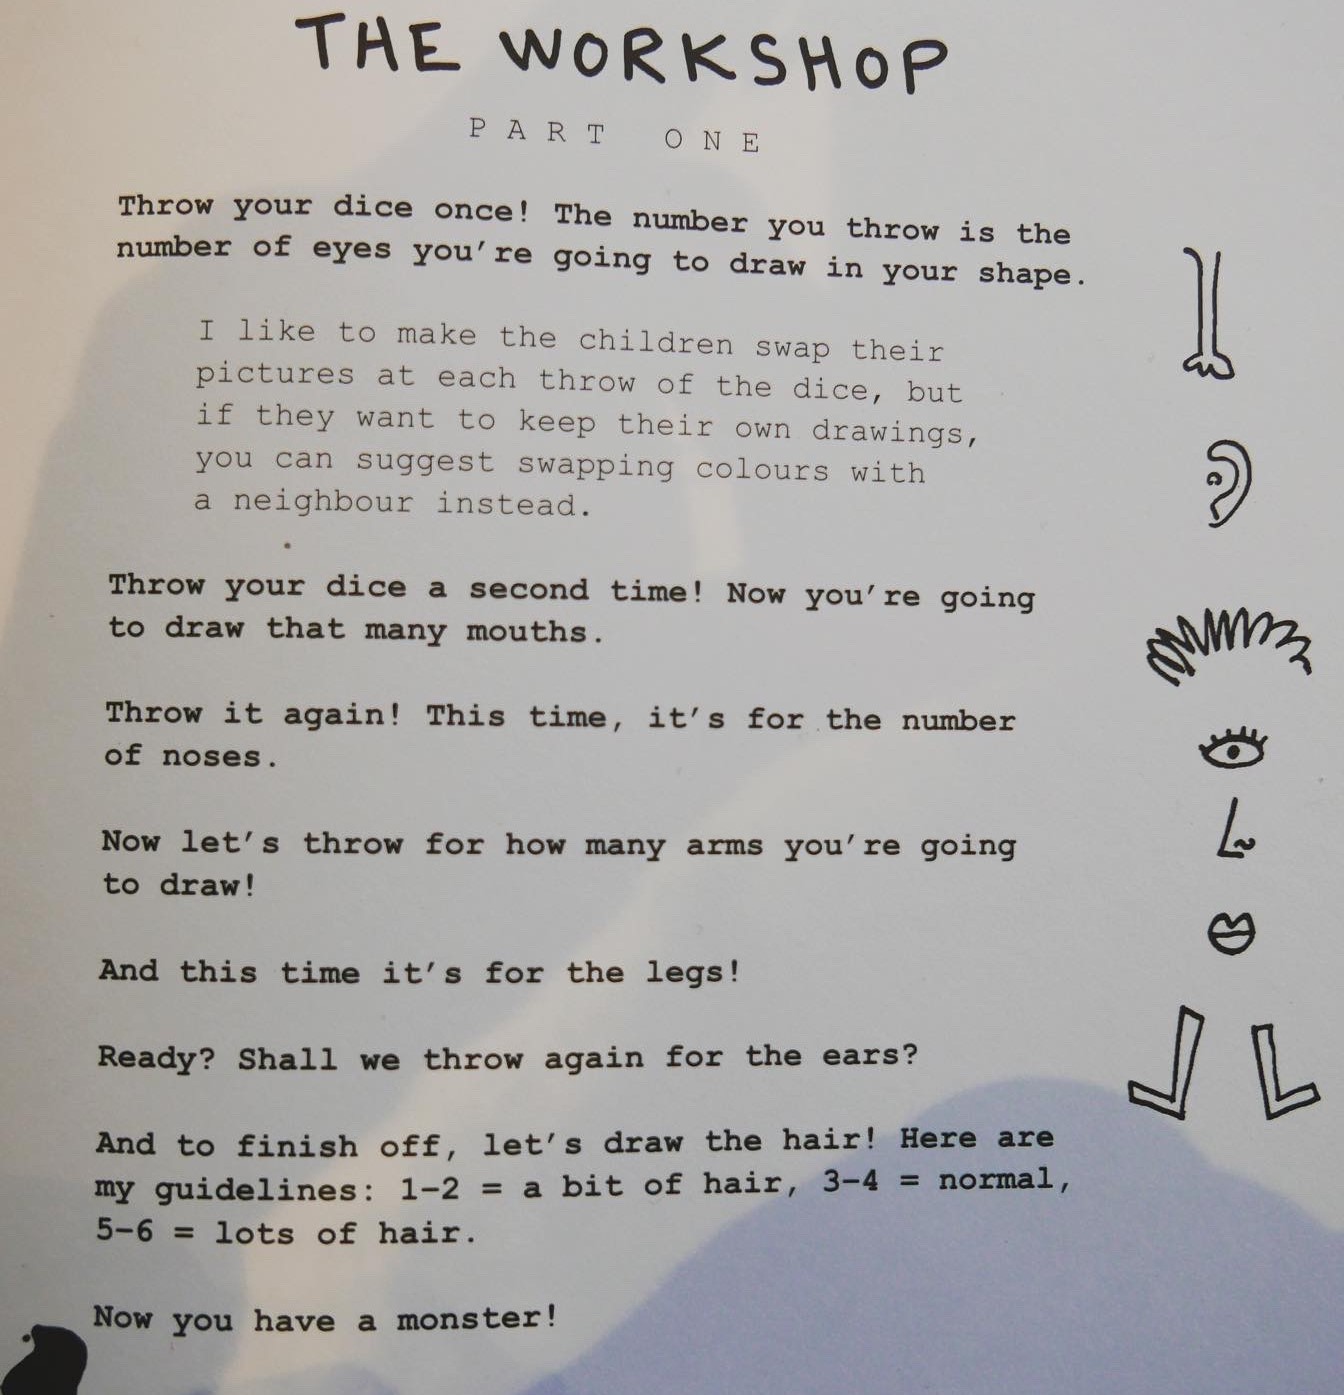 THE WORKSHOP
PART ONE
Throw your dice once! The number you throw is the
number of eyes you're going to draw in your shape.
I like to make the children swap their
pictures at each throw of the dice, but
if they want to keep their own drawings,
you can suggest swapping colours with
a neighbour instead.
Throw your dice a second time! Now you're going
to draw that many mouths.
Throw it again! This time, it's for the number
of noses.
Now let's throw for how many arms you're going
to draw!
And this time it's for the legs!
Ready? Shall we throw again for the ears?
And to finish off, let's draw the hair! Here are
my guidelines: 1-2 = a bit of hair, 3-4 = normal,
5-6 = lots of hair.
Now you have a monster!